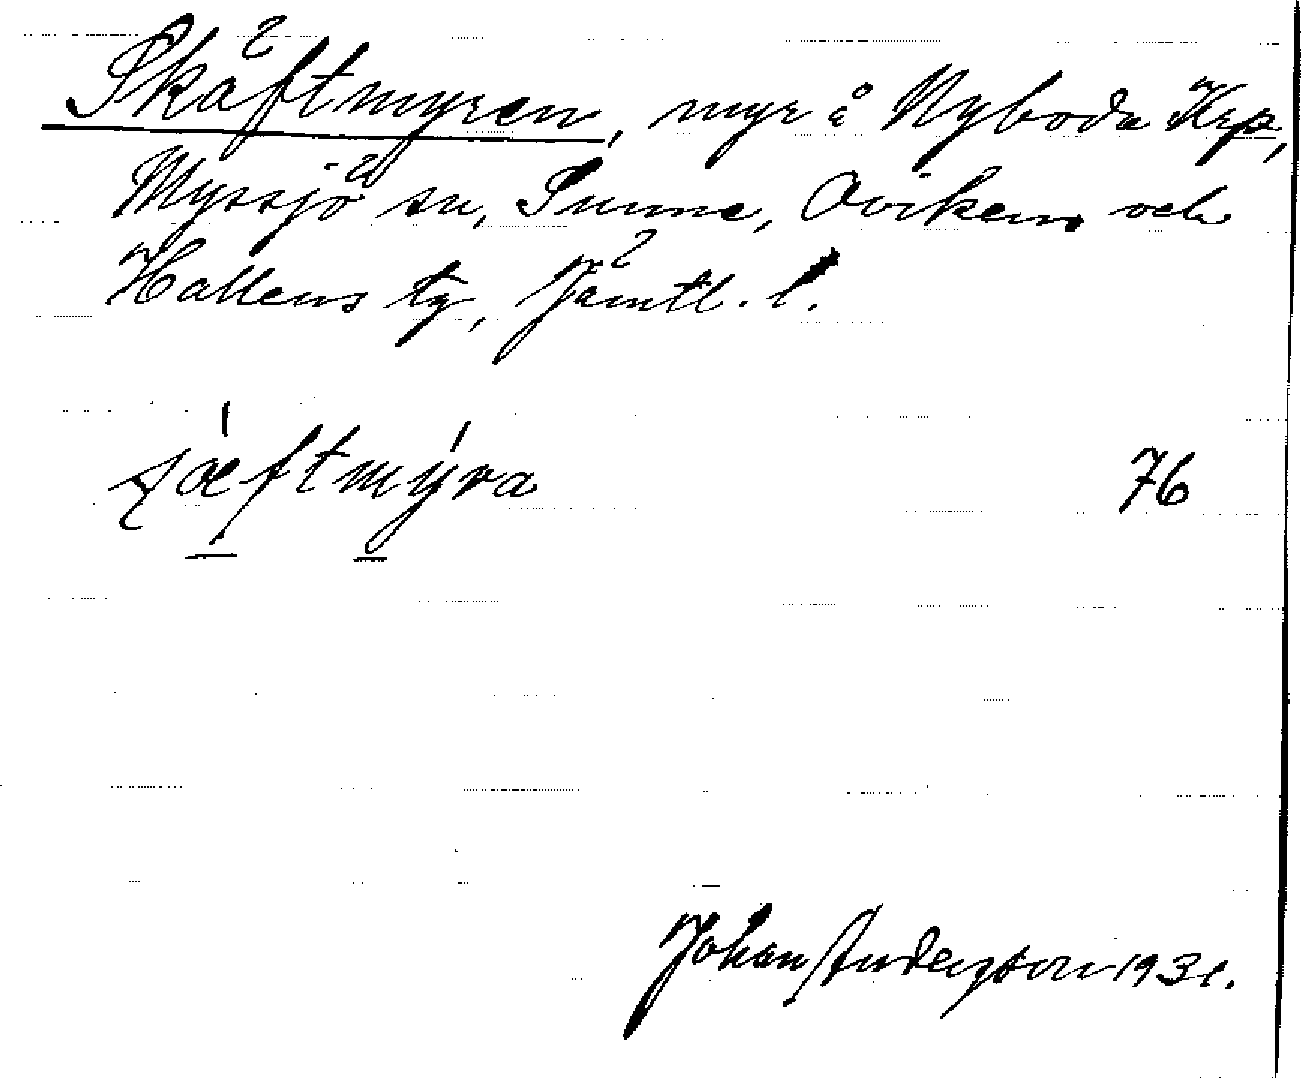 Skäftmyren, myr å Nyboda Krp,
Myssjö sn, Sunne, Oviken och
Hallens tg, Jämtl. l.
ʂæftmýra 76
Johan Anderzson 1931.